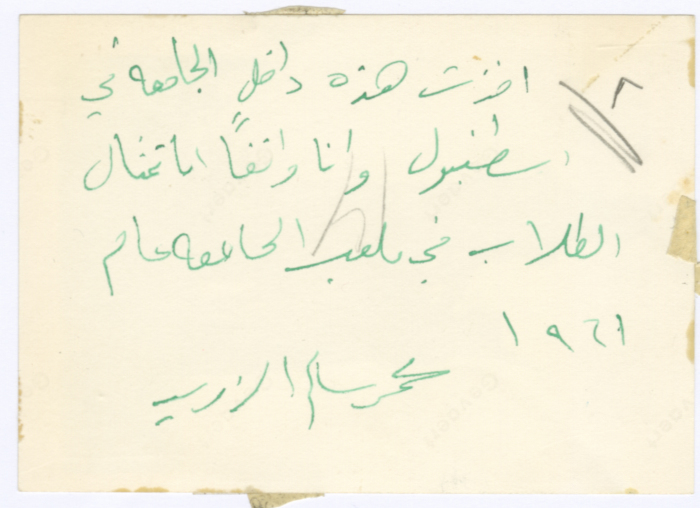 اخذت هذه داخل الجامعه في
اسطنبول وانا واقفاً اما تمثال
الطلاب في ملعب الجامعه عام
١٩٦١
محمد سالم
٨